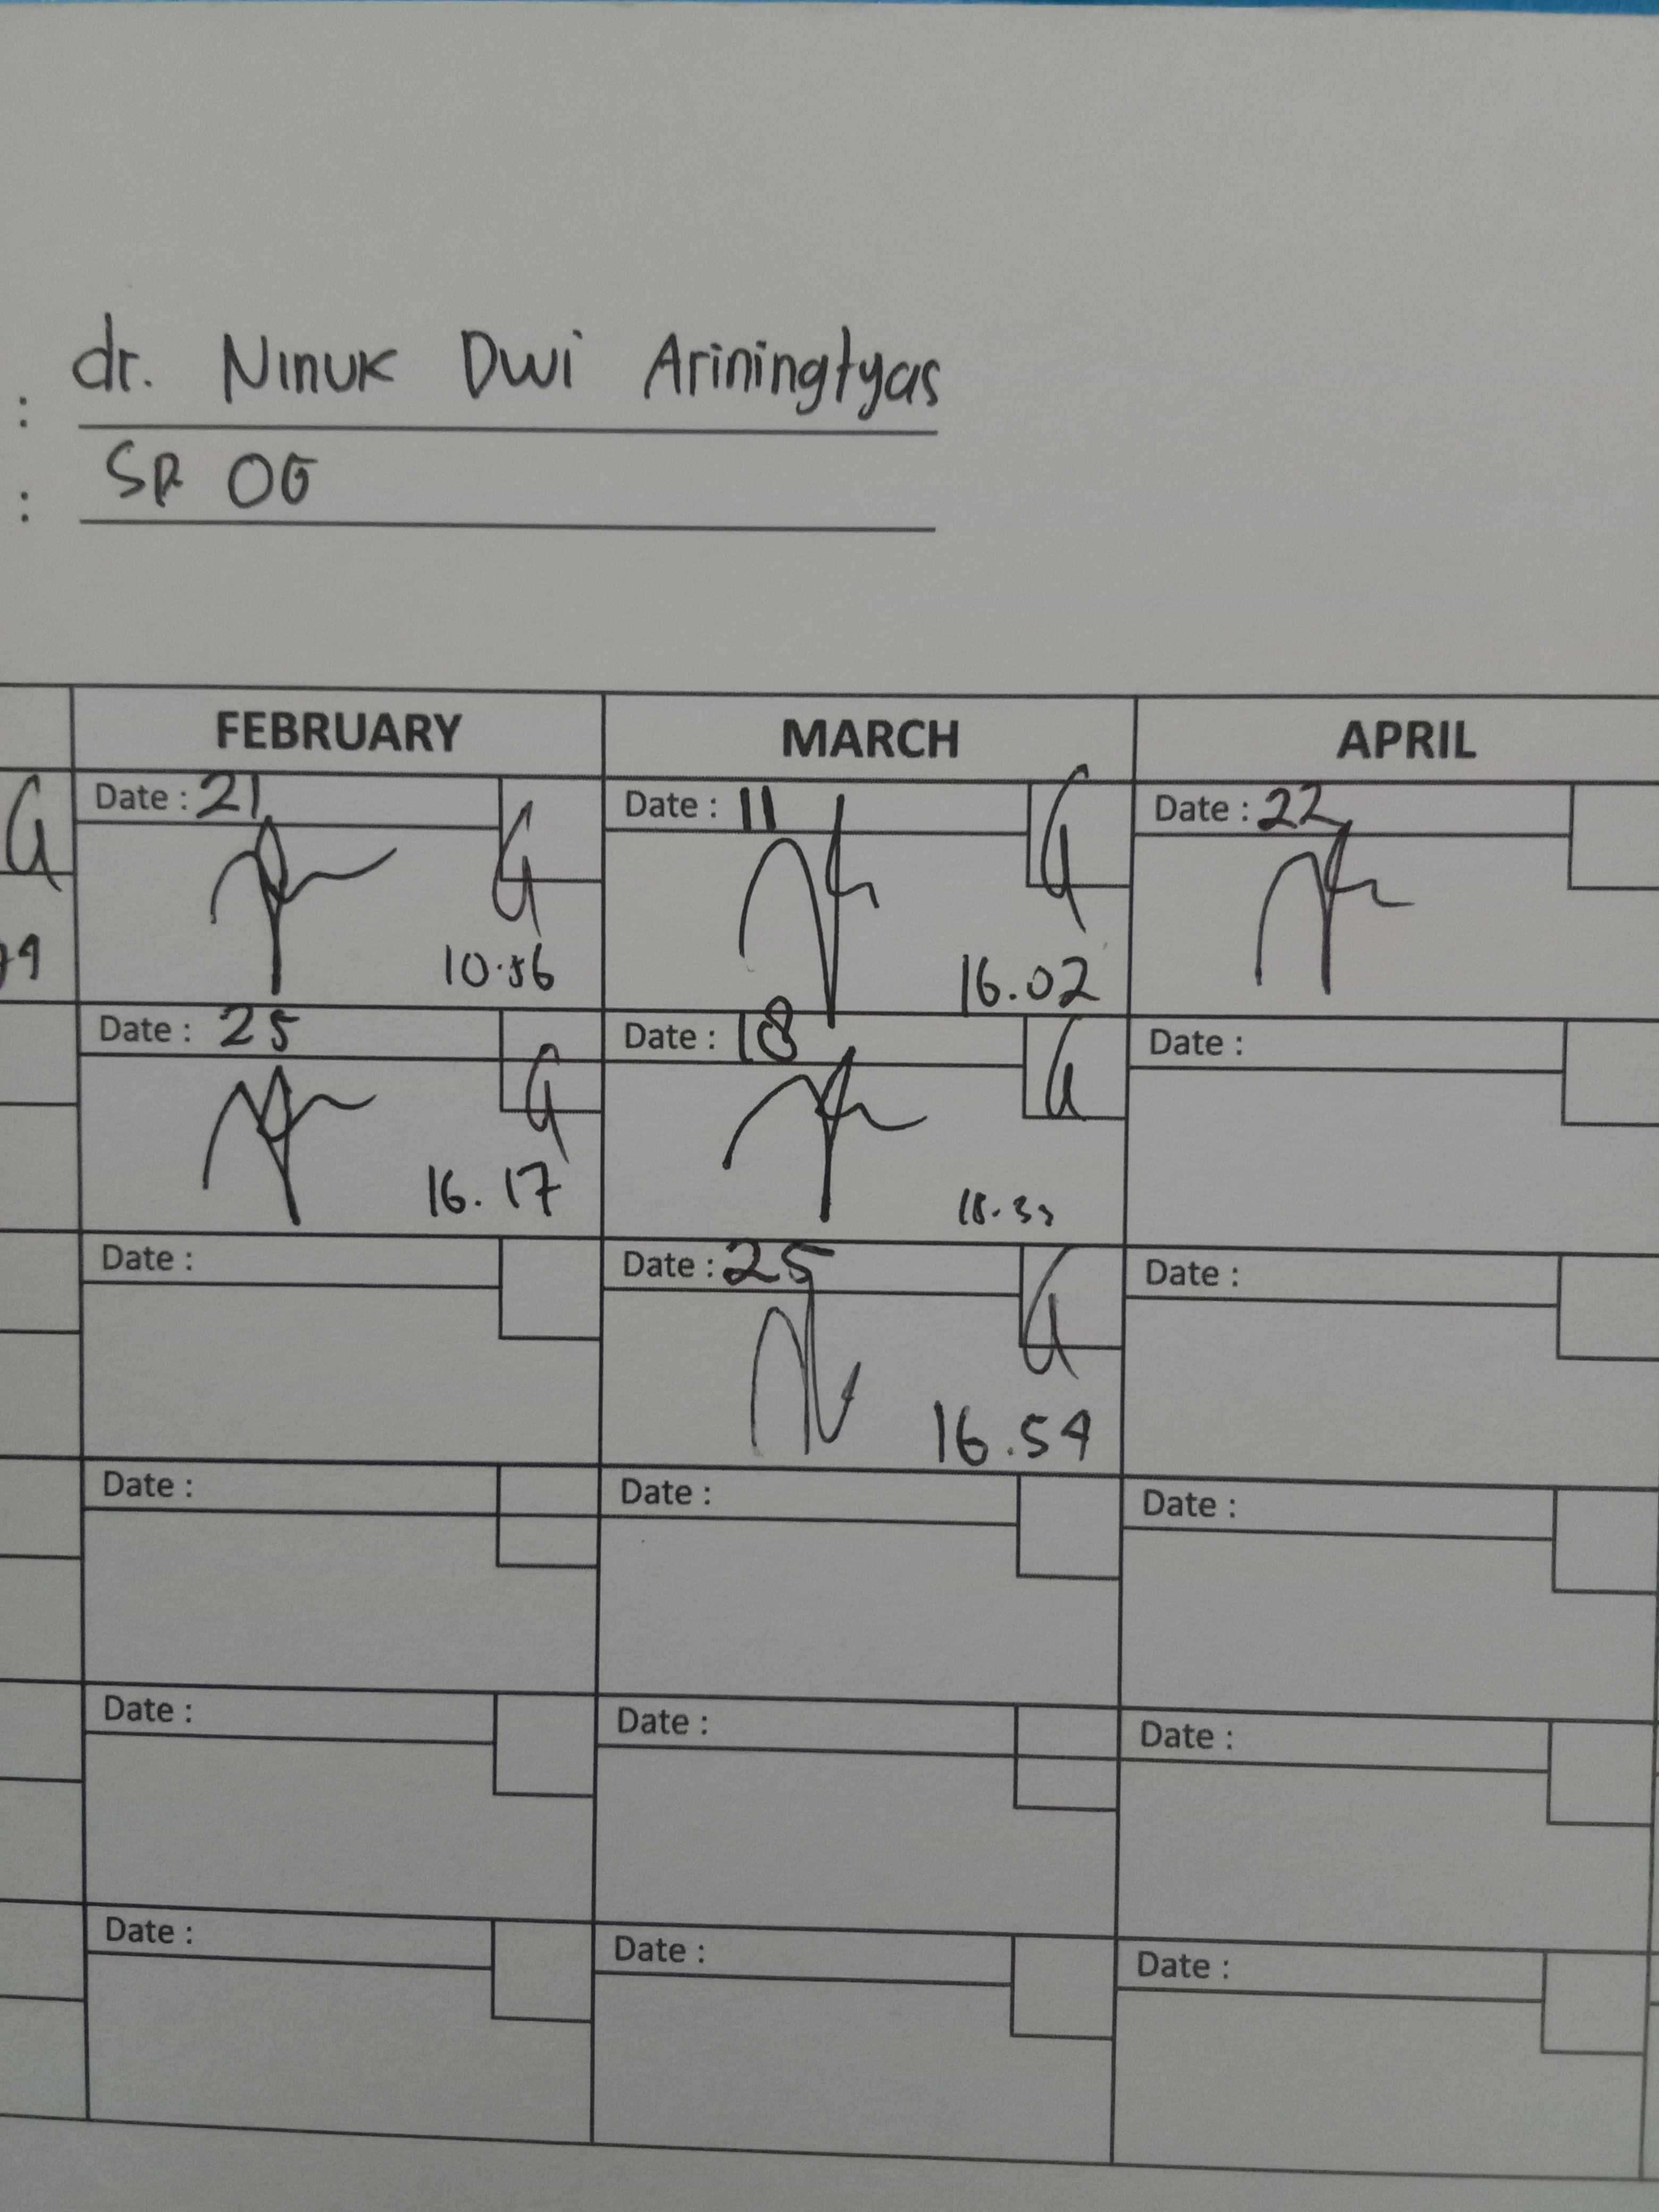 : dr. Ninuk Dwi Ariningtyas
: SP OG
FEBRUARY MARCH APRIL
Date : 21 Date : 11 Date : 22
10.56 16.02
Date : 25 Date : 18 Date :
16.17
Date : Date : 25 Date :
16.54
Date : Date : Date :
Date : Date : Date :
Date : Date : Date :